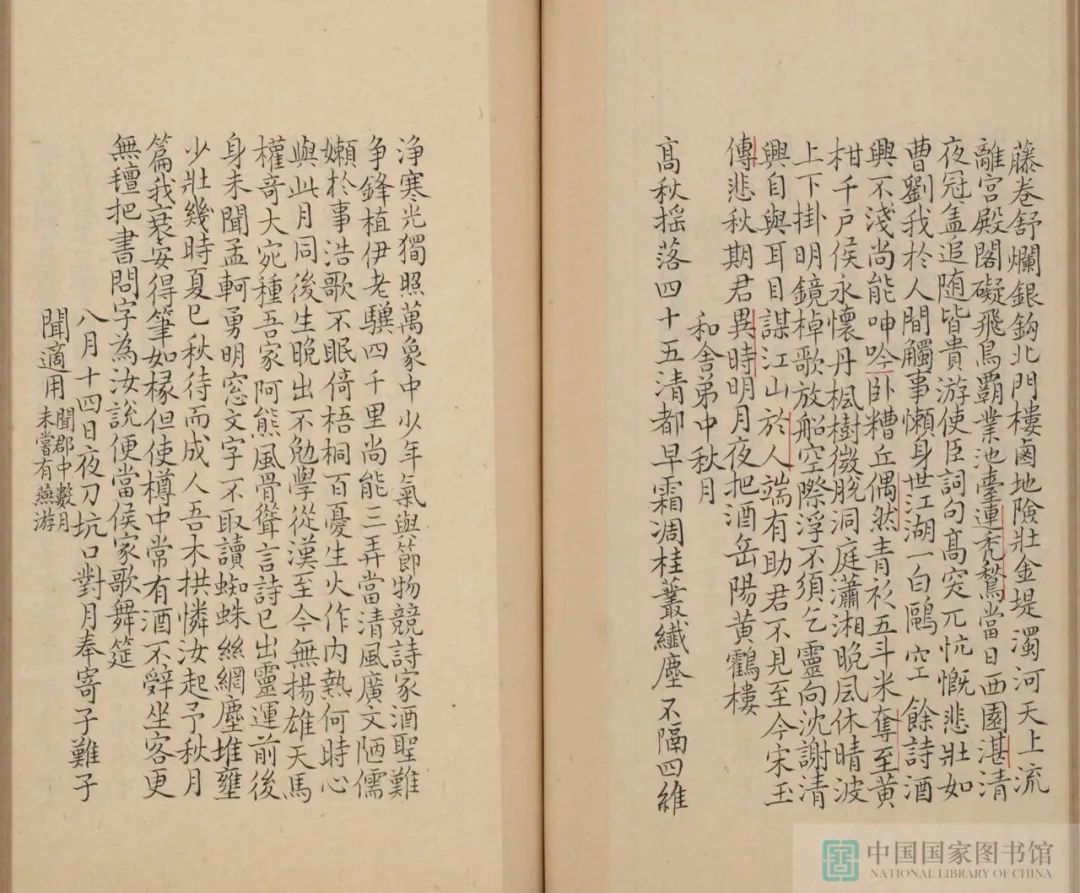 藤卷舒爛銀鈎北門樓鹵地險壯金堤濁河天上流
離宮殿閣礙飛鳥覇業池臺連禿鶖當日西園湛清
夜冠盖追随皆貴游使臣詞句髙突兀忼慨悲壯如
曹劉我於人間觸事懶身世江湖一白鷗空餘詩酒
興不淺尚能呻吟卧糟丘偶然青衫五斗米奪至黄
柑千戸侯永懷丹楓樹微脫洞庭瀟湘晚風休晴波
上下掛明鏡棹歌放船空際浮不須乞靈向沈謝清
興自與耳目謀江山於人端有助君不見至今宋玉
傳悲秋期君異時明月夜把酒岳陽黄鶴樓
和舍弟中秋月
髙秋揺落四十五清都早霜凋桂叢纖塵不隔四維
浄寒光獨照萬象中少年氣與節物競詩家酒聖難
争鋒植伊老驥四千里尚能三弄當清風廣文陋儒
嬾於事浩歌不眠倚梧桐百憂生火作内熱何時心
與此月同後生晚出不勉學從漢至今無揚雄天馬
權竒大宛種吾家阿熊風骨聳言詩已出靈運前後
身未聞孟軻勇明窓文字不取讀蜘蛛絲網塵堆壅
少壯幾時夏已秋待而成人吾木拱憐汝起予秋月
篇我衰安得筆如椽但使樽中常有酒不辤坐客更
無氊把書問字為汝說便當侯家歌舞筵
八月十四日夜刀坑口對月奉寄子難子
聞適用聞郡中數月
未嘗有燕游
中国国家图书馆
NATIONAL LIBRARY OF CHINA